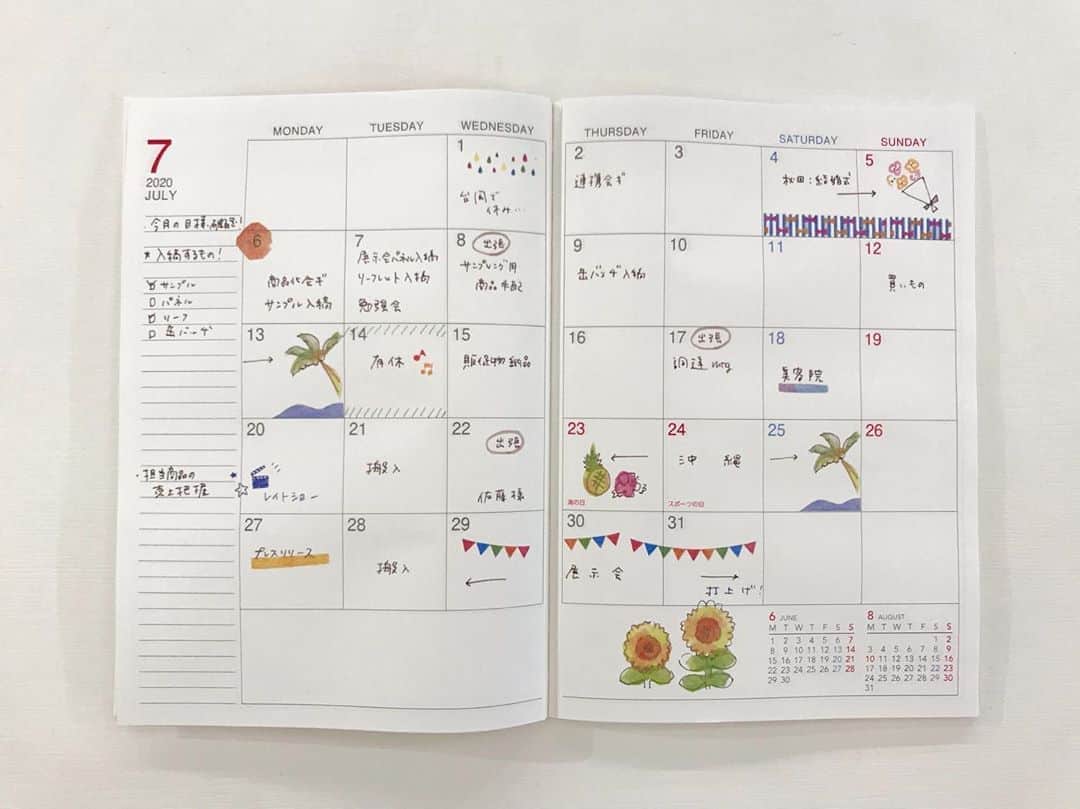 7
2020
JULY
・今月の目標、確認!
★入稿するもの!
サンプル
パネル
リーフ
缶バッヂ
・担当商品の
売上把握
MONDAY TUESDAY WEDNESDAY THURSDAY FRIDAY SATURDAY SUNDAY
1
台風で
休み…
2
連携会ギ
3
4
秋田:結婚式
5
6
商品化会ギ
サンプル入稿
7
展示会パネル入稿
リーフレット入稿
勉強会
8 出張
サンプリング用
商品手配
9
缶バッヂ入稿
10
11
12
買いもの
13
14
有休
15
販促物納品
16
17 出張
調達mtg
18
美容院
19
20
レイトショー
21
搬入
22
出張
佐藤様
23
海の日
24
沖 縄
スポーツの日
25
26
27
プレスリリース
28
搬入
29
30
展 示 会
31
打上げ!
6 JUNE
M T W T F S S
1 2 3 4 5 6 7
8 9 10 11 12 13 14
15 16 17 18 19 20 21
22 23 24 25 26 27 28
29 30
8 AUGUST
M T W T F S S
1 2
3 4 5 6 7 8 9
10 11 12 13 14 15 16
17 18 19 20 21 22 23
24 25 26 27 28 29 30
31